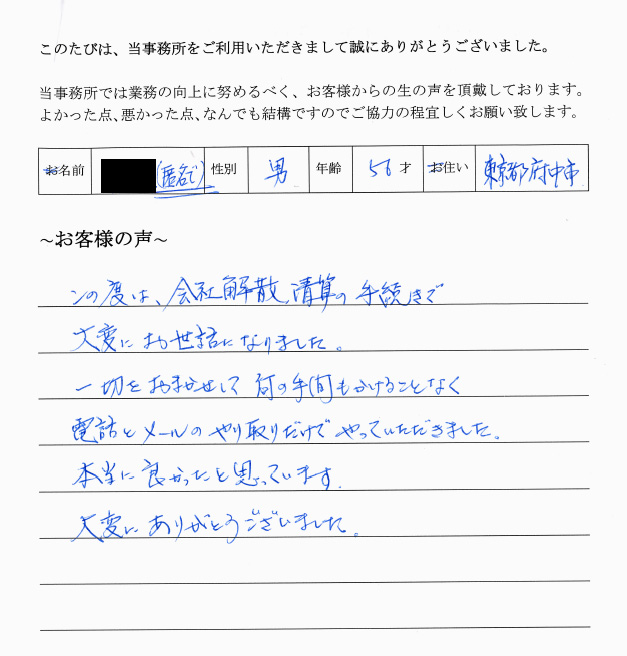 このたびは、当事務所をご利用いただきまして誠にありがとうございました。
当事務所では業務の向上に努めるべく、お客様からの生の声を頂戴しております。
よかった点、悪かった点、なんでも結構ですのでご協力の程宜しくお願い致します。
お名前 (匿名で) 性別 男 年齢 56 才 お住い 東京都府中市
~お客様の声~
この度は、会社解散、清算の手続きで
大変にお世話になりました。
一切をおまかせして 何の手間もかけることなく
電話とメールのやり取りだけでやっていただきました。
本当に良かったと思っています。
大変にありがとうございました。